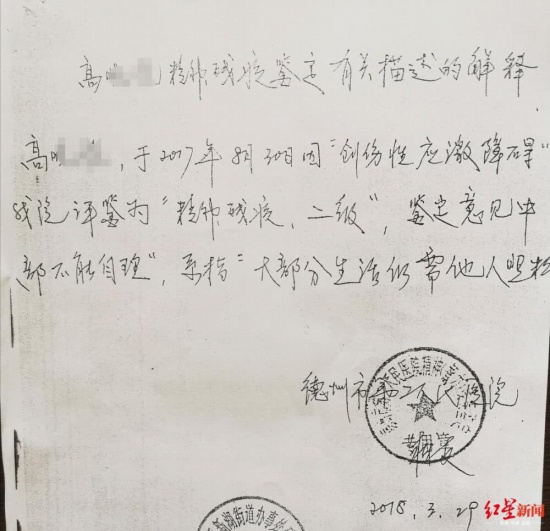 高 精神残疾鉴定有关描述的解释
高 ,于2017年8月30日因"创伤性应激障碍"
我院评鉴为"精神残疾、二级",鉴定意见中
部不能自理",系指"大部分生活仍需他人照料
德州市第二人民医院
2018.3.29
红星新闻